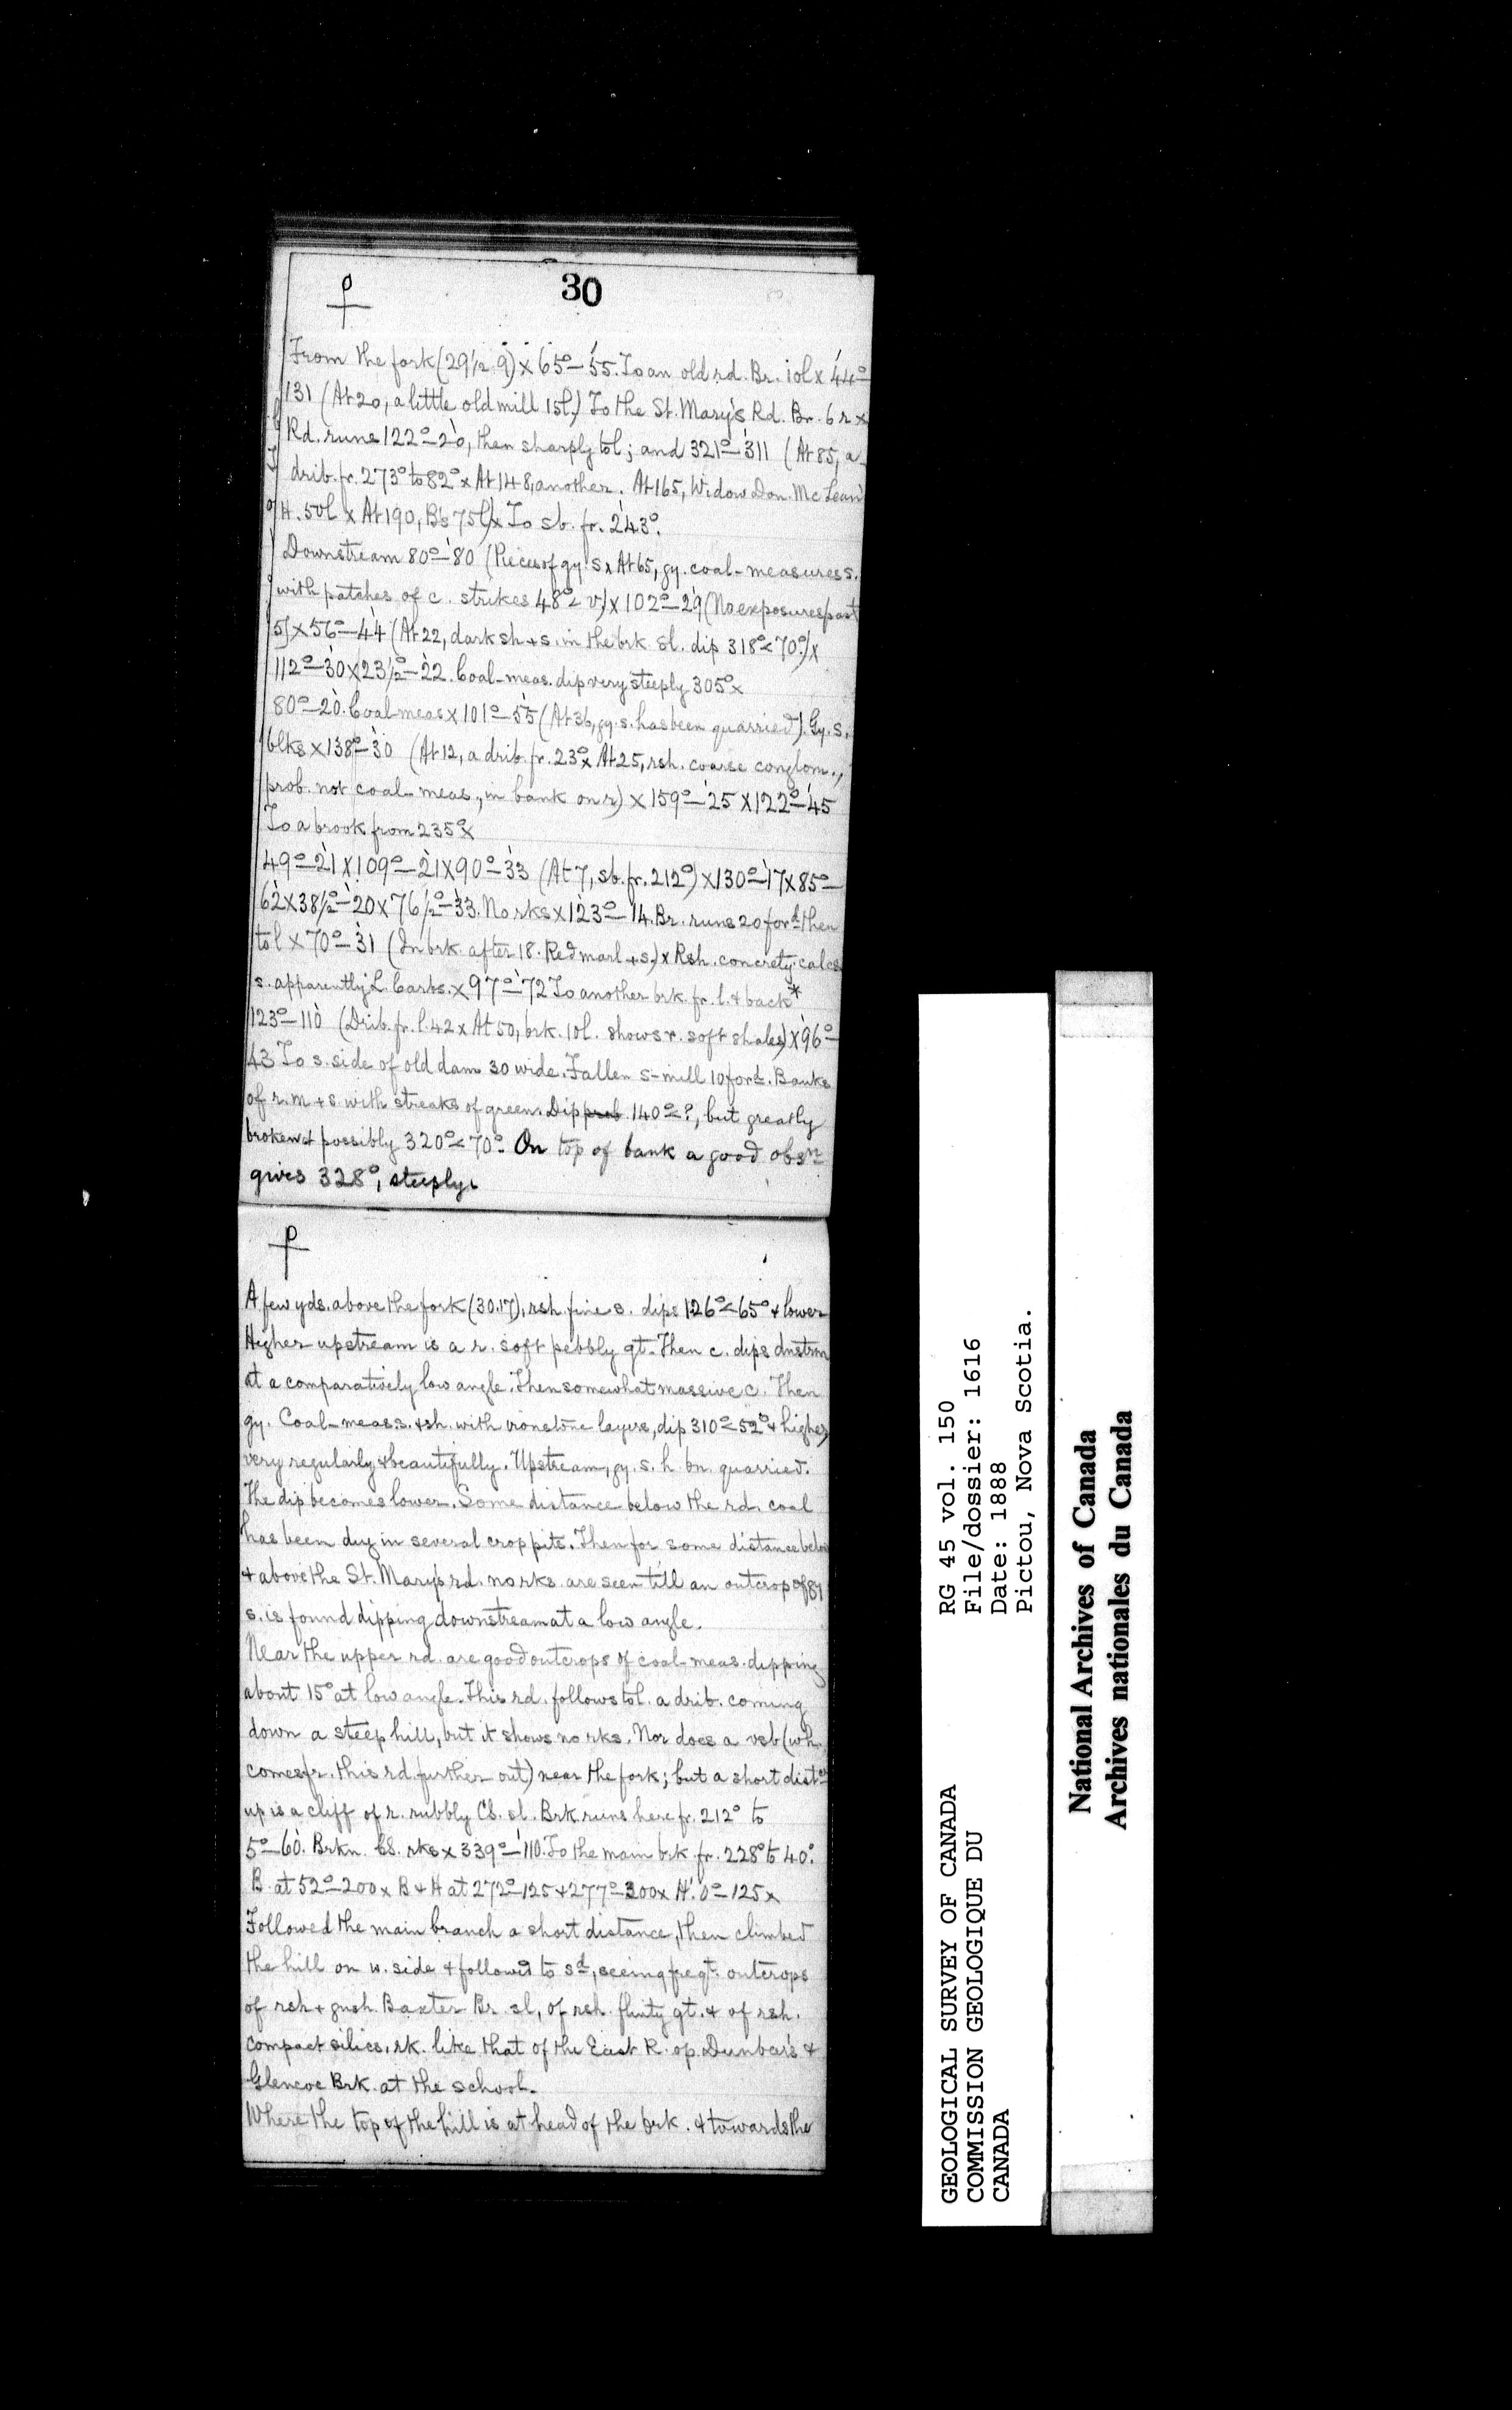 30
From the fork (29½.9) x 65°–55. To an old rd. Br. 10l x 44°–
131 (At 20, a little old mill 15l.) To the St. Mary's Rd. Br. 6 r x
Rd. runs 122°–20, then sharply to l; and 321°–311 (At 85, a
drib. fr. 273° to 82° x At 148, another. At 165, Widow Don. McLean's
H. 50l x At 190, B's 75l) x To sb. fr. 243°.
Downstream 80°–80 (Pieces of gy. s x At 65, gy. coal-measures s.
with patches of c. strikes 48° < v) x 102°–29 (No exposures past
5) x 56°–44 (At 22, dark sh + s. in the brk sl. dip 318° < 70°) x
112°–30 x 23½°–22. Coal-meas. dip very steeply 305° x
80°–20. Coal meas x 101°–55 (At 36, gy. s. has been quarried). Gy. s.
blks x 138°–30 (At 12, a drib. fr. 23° x At 25, rsh. coarse conglom.,
prob. not coal-meas., in bank on r) x 159°–25 x 122°–45
To a brook from 235° x
49°–21 x 109°–21 x 90°–33 (At 7, sb. fr. 212°) x 130°–17 x 85°–
62 x 38½°–20 x 76½°–33. No rks x 123°–14. Br. runs 20 ford then
to l x 70°–31 (In brk. after 18. Red marl + s.) x Rsh. concrety. calcs
s. apparently L. Carbs. x 97°–72 To another brk. fr. l. & back*
123°–110 (Drib. fr. l. 42 x At 50, brk. 10l. shows r. soft shales) x 96°–
43 To s. side of old dam 30 wide. Fallen s-mill 10 ford. Banks
of r. m + s with streaks of green. Dip prob 140° < ?, but greatly
broken & possibly 320° < 70°. On top of bank a good obsn
gives 328°, steeply.
A few yds. above the fork (30.17), rsh. fine s. dips 126° < 65° & lower
Higher upstream is a r. soft pebbly qt. Then c. dips dnstrm
at a comparatively low angle. Then somewhat massive c. Then
gy. Coal-meas s. & sh. with ironstone layers, dip 310° < 52° & higher,
very regularly & beautifully. Upstream, gy. s. h bn. quarried.
The dip becomes lower. Some distance below the rd. coal
has been dug in several crop pits. Then for some distance below
& above the St. Mary's rd. no rks. are seen till an outcrop of gy
s. is found dipping downstream at a low angle.
Near the upper rd. are good outcrops of coal-meas. dipping
about 15° at low angle. This rd. follows to l. a drib. coming
down a steep hill, but it shows no rks. Nor does a vsb (wh.
comes fr. this rd. further out) near the fork; but a short distce
up is a cliff of r. rubbly CS. sl. Brk. runs here fr. 212° to
5°–60. Brkn. CS. rks x 339°–110. To the main brk. fr. 228° to 40°.
B. at 52°–200 x B & H at 272°–125 & 277°–300 x H. 0°–125 x
Followed the main branch a short distance, then climbed
the hill on w. side & followed to sd, seeing freqt. outcrops
of rsh & gnsh. Baxter Br. sl, of rsh. flinty qt. & of rsh.
compact silics. rk. like that of the East R. op. Dunbar's &
Glencoe Brk. at the school.
Where the top of the hill is at head of the brk. & towards the
GEOLOGICAL SURVEY OF CANADA
COMMISSION GEOLOGIQUE DU
CANADA
RG 45 vol. 150
File/dossier: 1616
Date: 1888
Pictou, Nova Scotia.
National Archives of Canada
Archives nationales du Canada